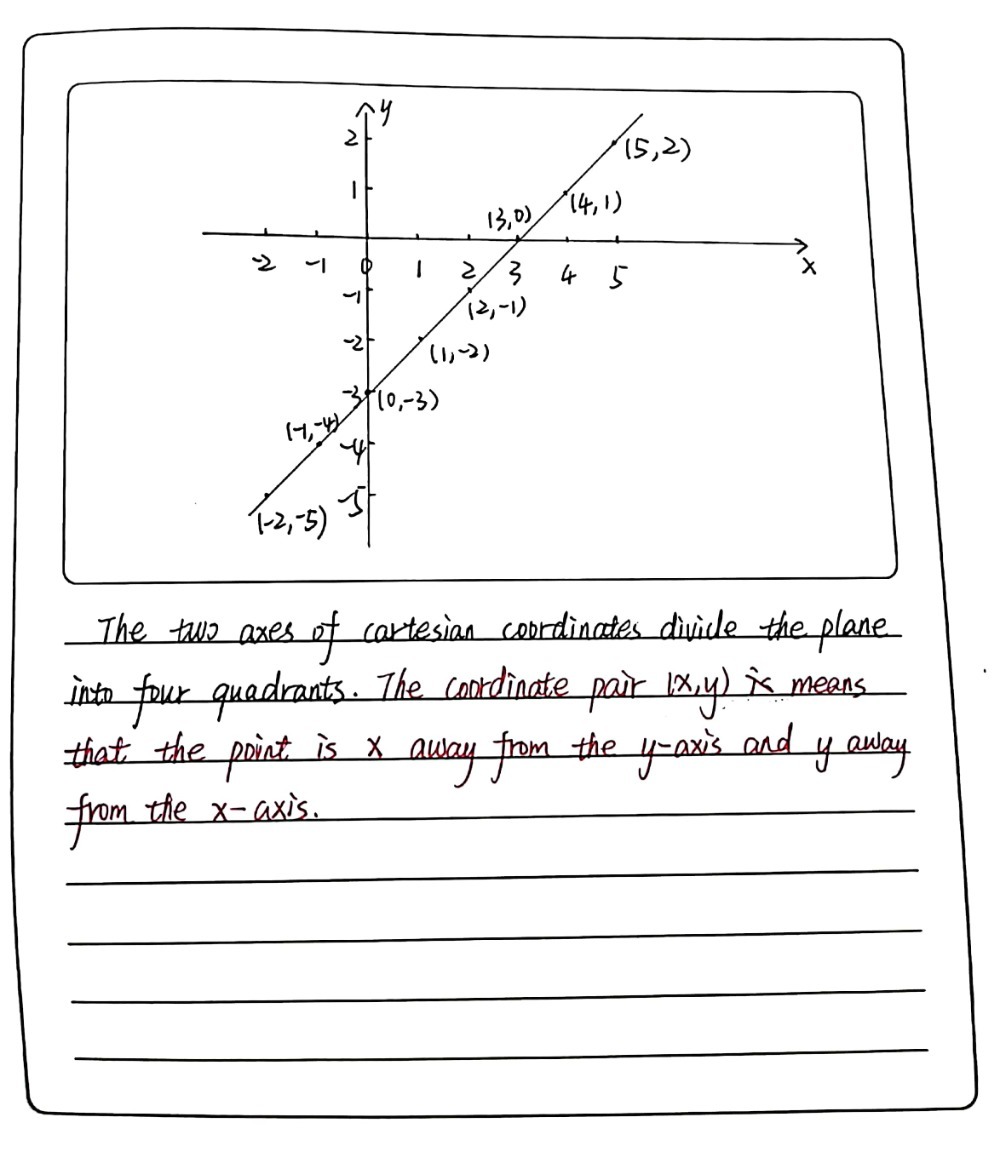 y
2
(5,2)
1
(4,1)
(3,0)
-2 -1 0 1 2 3 4 5 x
-1
(2,-1)
-2
(1,-2)
-3 (0,-3)
(-1,-4)
-4
-5
(-2,-5)
The two axes of cartesian coordinates divide the plane
into four quadrants. The coordinate pair (x,y) is means
that the point is x away from the y-axis and y away
from the x-axis.